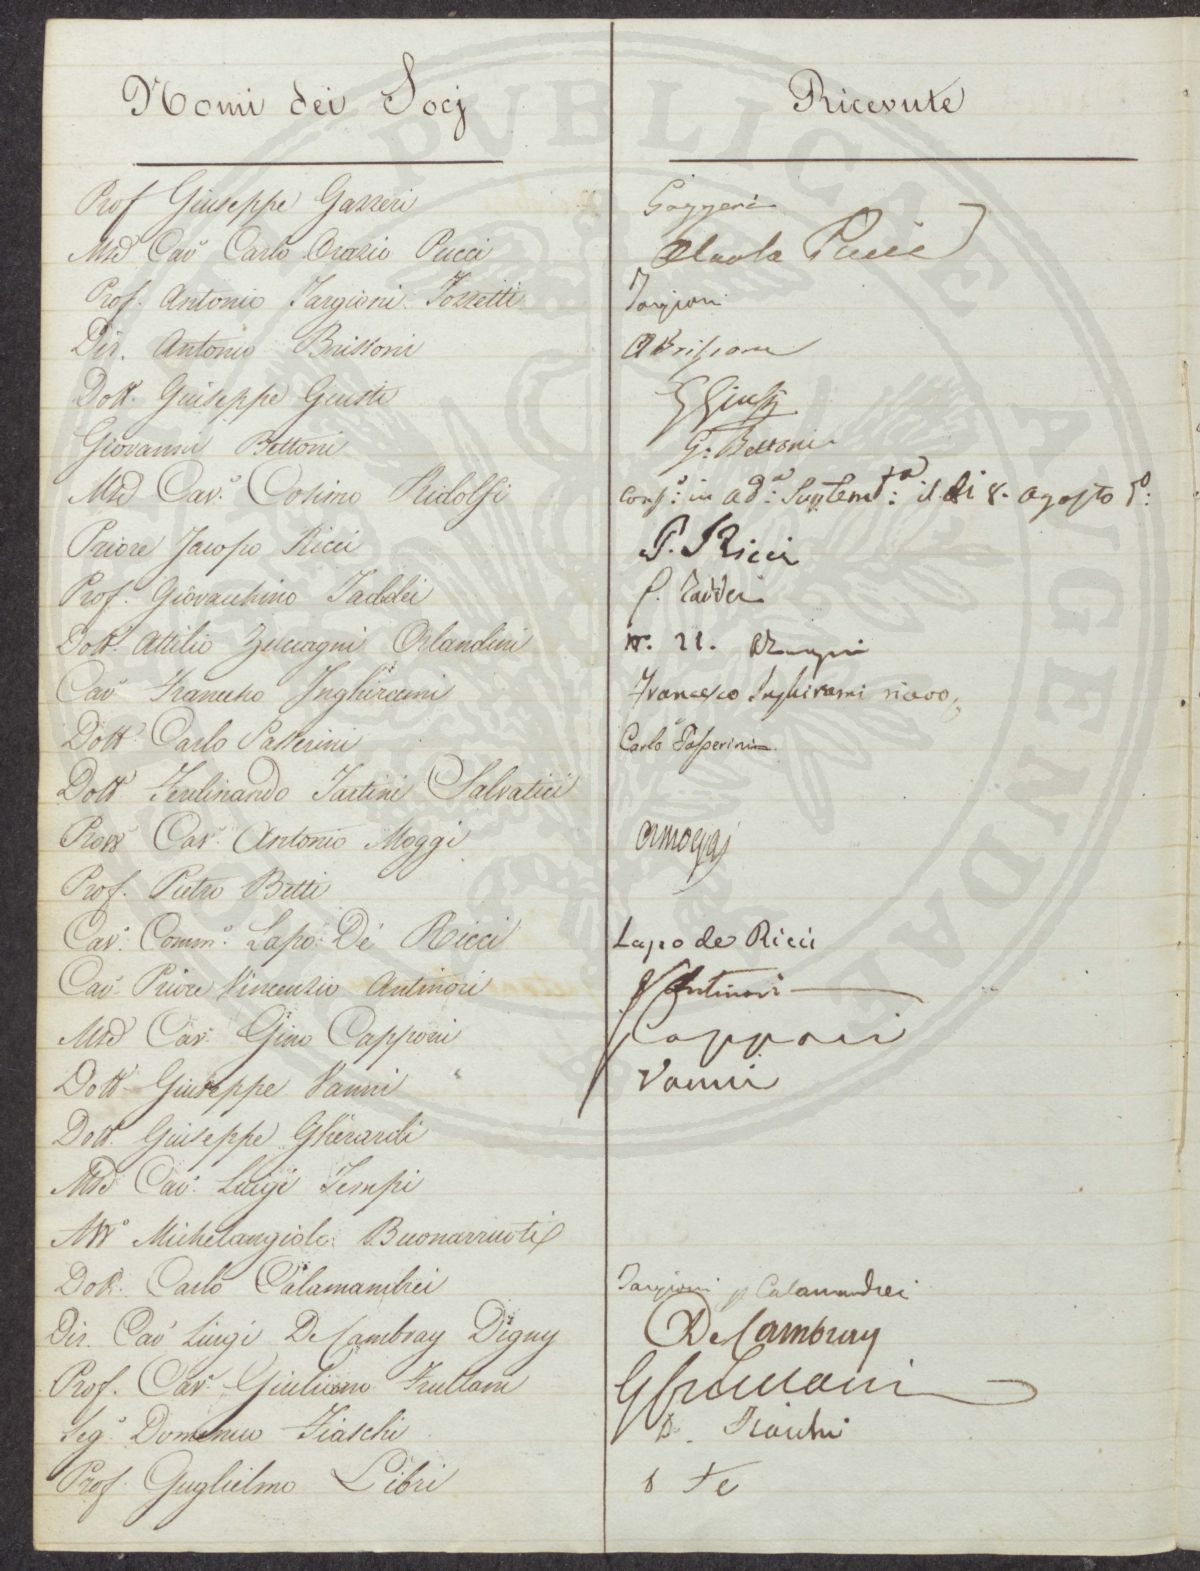 Nomi dei Socj
Ricevute
Prof Giuseppe Gazzeri
Gazzeri
Mse Cav.e Carlo Orazio Pucci
Pucci
Prof. Antonio Targioni Tozzetti
Targioni
Dir. Antonio Brissoni
Dott. Giuseppe Giusti
G Giusti
Giovanni Bettoni
G. Bettoni
Mse Cav.e Cosimo Ridolfi
il di 8. Agosto
Priore Jacopo Ricci
P. Ricci
Prof. Giovacchino Taddei
G. Taddei
Dott. Attilio Zuccagni Orlandini
N. 21.
Cav.e Francesco Inghirami
Francesco Inghirami
Dott. Carlo Passerini
Carlo Passerini
Dott. Ferdinando Tartini Salvatici
Cav.e Antonio Moggi
AMoggi
Prof. Pietro Betti
Cav.e Comm.e Lapo De Ricci
Lapo de Ricci
Cav.e Priore Vincenzio Antinori
V Antinori
Mse Cav.e Gino Capponi
Capponi
Dott. Giuseppe Vanni
Vanni
Dott. Giuseppe Gherardi
Mse Cav.e Luigi Tempi
Avv.o Michelangiolo Buonarruoti
Dott. Carlo Calamandrei
Targioni p Calamandrei
Dir. Cav.e Luigi De Cambray Digny
De Cambray
Prof. Cav.e Giuliano Frullani
G Frullani
Seg.o Domenico Fiaschi
D. Fiaschi
Prof. Guglielmo Libri
PVBLICAE AVGENDAE